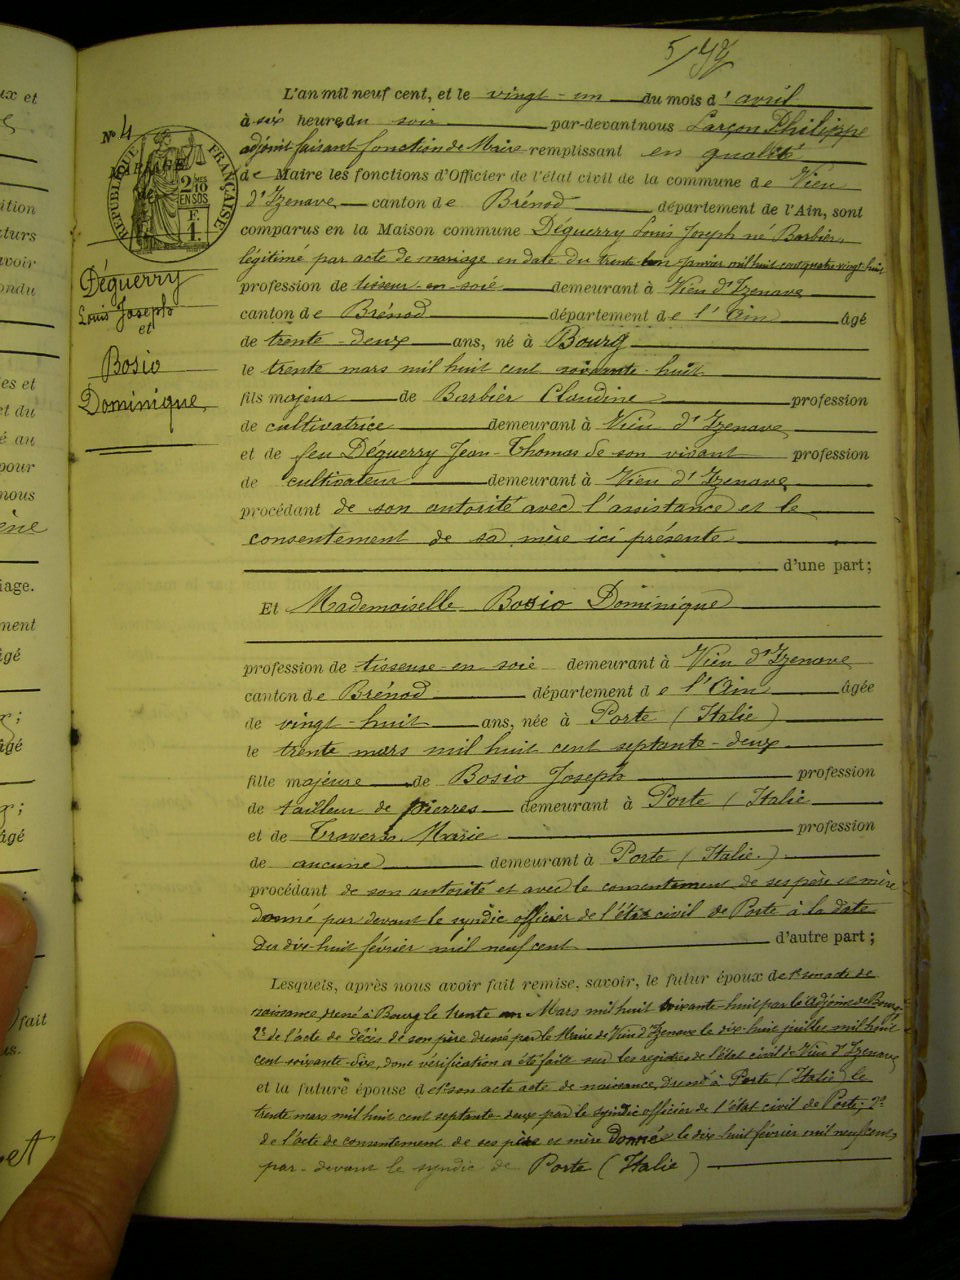 5/
L'an mil neuf cent, et le vingt-un du mois d'avril
à six heures du soir par-devant nous Larçon Philippe
adjoint faisant fonction de Maire remplissant en qualité
de Maire les fonctions d'Officier de l'état civil de la commune de Vieu
d'Izenave canton de Brénod département de l'Ain, sont
comparus en la Maison commune Déguerry Louis Joseph né Barbier,
légitimé par acte de mariage en date du trente janvier mil huit cent quatre vingt huit
profession de tisseur en soie demeurant à Vieu d'Izenave
canton de Brénod département de l'Ain âgé
de trente-deux ans, né à Bourg
le trente mars mil huit cent soixante-huit
fils majeur de Barbier Claudine profession
de cultivatrice demeurant à Vieu d'Izenave
et de feu Déguerry Jean-Thomas de son vivant profession
de cultivateur demeurant à Vieu d'Izenave
procédant de son autorité avec l'assistance et le
consentement de sa mère ici présente
d'une part;
Et Mademoiselle Bosio Dominique
profession de tisseuse en soie demeurant à Vieu d'Izenave
canton de Brénod département de l'Ain âgée
de vingt-huit ans, née à Porte (Italie)
le trente mars mil huit cent septante-deux
fille majeure de Bosio Joseph profession
de tailleur de pierres demeurant à Porte (Italie
et de Travers Marie profession
de aucune demeurant à Porte (Italie.)
procédant de son autorité et avec le consentement de ses père et mère
donné par devant le syndic officier de l'état civil de Porte à la date
du dix-huit février mil neuf cent d'autre part;
Lesquels, après nous avoir fait remise, savoir, le futur époux de 1º son acte de
naissance dressé à Bourg le trente un Mars mil huit soixante-huit par le adjoint de Bourg
2º de l'acte de décès de son père dressé par le Maire de Vieu d'Izenave le dix-huit juillet mil huit
cent soixante-dix, dont vérification a été faite sur les registres de l'état civil de Vieu d'Izenave
et la future épouse de 1º son acte acte de naissance, dressé à Porte (Italie) le
trente mars mil huit cent septante-deux par le syndic officier de l'état civil de Porte; 2º
de l'acte de consentement de ses père et mère donné le dix huit février mil neuf cent,
par-devant le syndic de Porte (Italie)
Nº 4
MARIAGE
de
RÉPUBLIQUE FRANÇAISE
2 MES
10
EN SUS
Déguerry
Louis Joseph
et
Bosio
Dominique